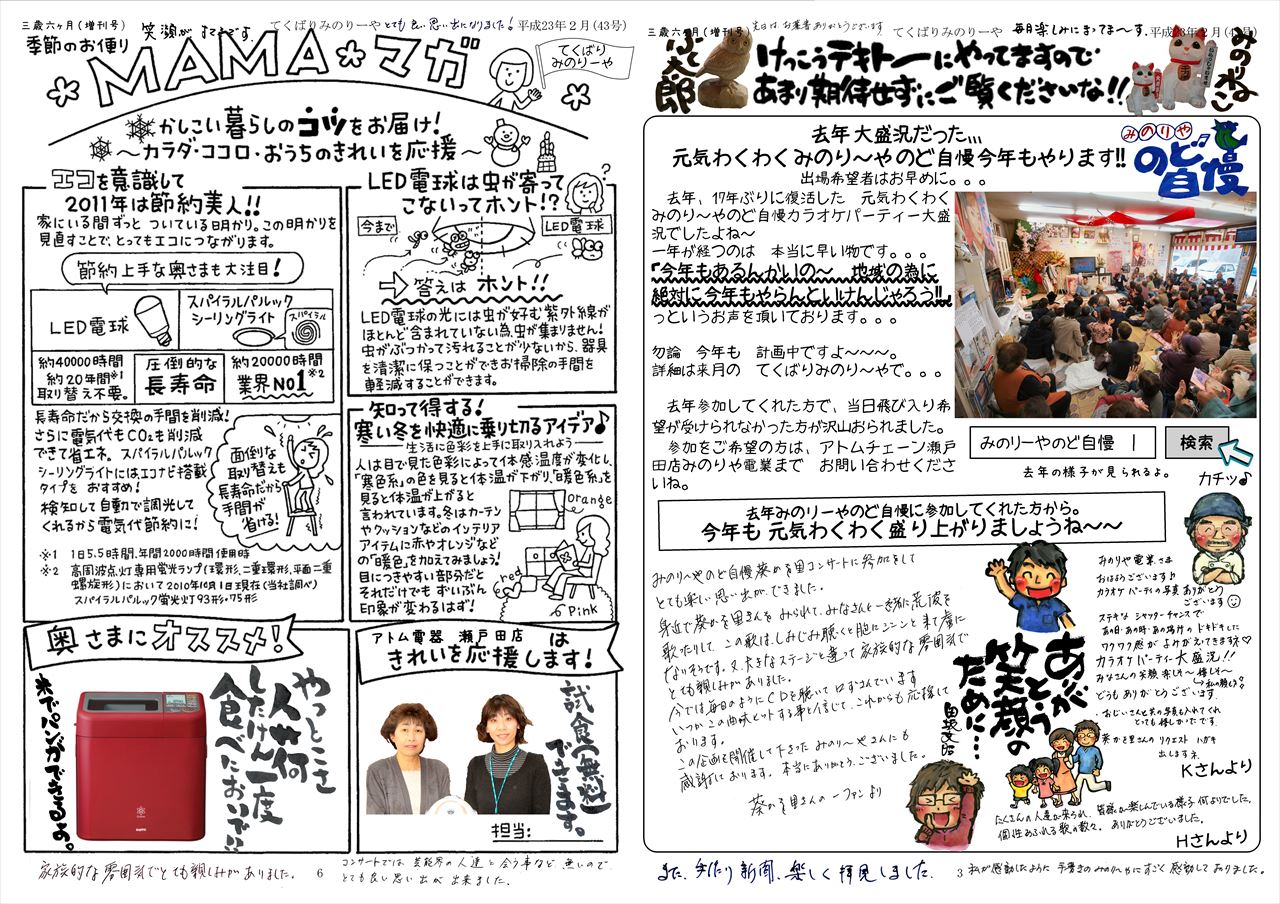 三歳六ヶ月(増刊号)
笑顔が すてきです。
てくぱりみのりーや とても良い思い出になりました! 平成23年2月(43号)
季節のお便り
MAMA*マガ
てくぱり
みのりーや
かしこい暮らしのコツをお届け!
～カラダ・ココロ・おうちのきれいを応援～
エコを意識して
2011年は節約美人!!
家にいる間ずっと ついている明かり。この明かりを
見直すことで、とってもエコにつながります。
節約上手な奥さまも大注目!
LED電球
スパイラルパルック
シーリングライト
スパイラル
約40000時間
約20年間※1
取り替え不要。
圧倒的な
長寿命
約20000時間
業界No1※2
長寿命だから交換の手間を削減!
さらに電気代もCO2も削減
できて省エネ。スパイラルパルック
シーリングライトにはエコナビ搭載
タイプを おすすめ!
検知して自動で調光して
くれるから電気代節約に!
面倒な
取り替えも
長寿命だから
手間が
省ける!
※1 1日5.5時間、年間2000時間使用時
※2 高周波点灯専用蛍光ランプ(環形、二重環形、平面二重
螺旋形)において2010年10月1日現在(当社調べ)
スパイラルパルック蛍光灯93形・75形
LED電球は虫が寄って
こないってホント!?
今まで
LED電球
答えは ホント!!
LED電球の光には虫が好む紫外線が
ほとんど含まれていない為、虫が集まりません!
虫がぶつかって汚れることが少ないから、器具
を清潔に保つことができお掃除の手間を
軽減することができます。
知って得する!
寒い冬を快適に乗り切るアイデア♪
生活に色彩を上手に取り入れよう
人は目で見た色彩によって体感温度が変化し、
「寒色系」の色を見ると体温が下がり、「暖色系」を
見ると体温が上がると
言われています。冬はカーテン
やクッションなどのインテリア
アイテムに赤やオレンジなど
の「暖色」を加えてみましょう!
目につきやすい部分だと
それだけでも ずいぶん
印象が変わるはず!
orange
red
Pink
奥さまにオススメ!
やっとこさ
入荷
したけん一度
食べたおいで!!
米でパンができるよ。
SANYO
アトム電器 瀬戸田店 は
きれいを応援します!
試食(無料)
できます。
担当:
家族的な雰囲気でとても親しみがありました。
6
コンサートでは 芸能界の人達と会う事など、無いので、
とても良い思い出が出来ました。
三歳六ヶ月(増刊号)
先日は お葉書ありがとうございます
てくぱりみのりーや
毎月楽しみにまってま～す。
平成23年2月(43号)
ふく太郎
けっこうテキトーにやってますので
あまり期待せずにご覧くださいな!!
みのりねこ
去年大盛況だった、、、
元気わくわくみのり～やのど自慢今年もやります!!
出場希望者はお早めに。。。
みのりや
のど自慢
去年、17年ぶりに復活した 元気わくわく
みのり～やのど自慢カラオケパーティー大盛
況でしたよね～
一年が経つのは 本当に早い物です。。。
「今年もあるんかいの～ 地域の為に
絶対に今年もやらんといけんじゃろう!!」
っというお声を頂いております。。。
勿論 今年も 計画中ですよ～～～。
詳細は来月の てくぱりみのりーやで。。。
去年参加してくれた方で、当日飛び入り希
望が受けられなかった方が沢山おられました。
参加をご希望の方は、アトムチェーン瀬戸
田店みのりや電業まで お問い合わせくださ
いね。
みのりーやのど自慢
検索
去年の様子が見られるよ。
カチッ♪
去年みのりーやのど自慢に参加してくれた方から。
今年も 元気わくわく盛り上がりましょうね～～
みのり～やのど自慢葵かを里コンサートに参加をして
とても楽しい思い出ができました。
身近で葵かを里さんをみられて、みなさんと一緒に荒波を
歌ったりして、この歌は、しみじみ聴くと胸にジーンと来て虜に
なりそうです。又、大きなステージと違って家族的な雰囲気で
とても親しみがありました。
今では毎日のようにCDを聴いて口ずさんでいます
いつかこの曲がヒットする事を信じて、これからも応援して
おります。
この企画を開催して下さったみのり～やさんにも
感謝しております。本当にありがとうございました。
葵かを里さんの一ファンより
ありがとう
笑顔の
ために…
みのりや電業さま
おはようございます♪
カラオケパーティの写真ありがとう
ございます
ステキなシャッターチャンスで
あの日・あの時・あの場所のドキドキした
ワクワク感がよみがえってきますネ♡
カラオケパーティー大盛況!!
みなさんの笑顔 楽しそ～ 嬉しそ～
どうもありがとうございます。
おじいさんと夫の写真も入れてくれ
とても嬉しかったです。
葵かを里さんのリクエスト ハガキ
出しますネ
Kさんより
たくさんの人達が来られ、皆様が楽しんでいる様子何よりでした。
個性あふれる歌の数々。ありがとうございました。
Hさんより
また、手作り新聞、楽しく拝見しました。
3
私が感動したように 手書きのみのり～やにすごく感動しておりました。